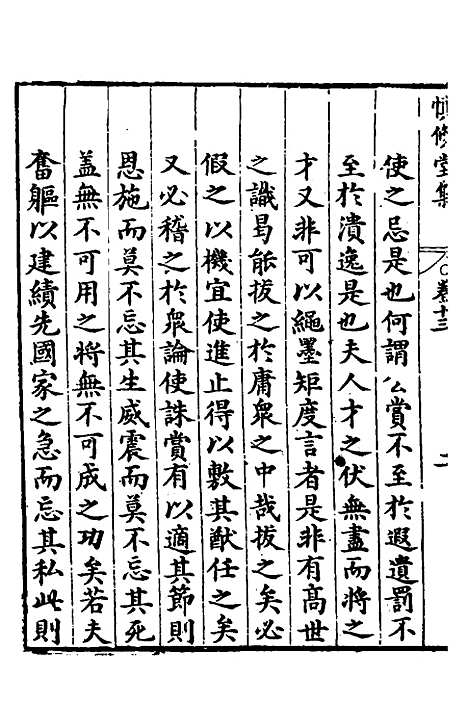 慎修堂集
卷十三
二
使之忌是也何謂公賞不至於遐遺罰不
至於潰逸是也夫人才之伏無盡而將之
才又非可以繩墨矩度言者是非有高世
之識曷能拔之於庸衆之中哉拔之矣必
假之以機宜使進止得以敷其猷任之矣
又必稽之於衆論使誅賞有以適其節則
恩施而莫不忘其生威震而莫不忘其死
蓋無不可用之將無不可成之功矣若夫
奮軀以建績先國家之急而忘其私此則